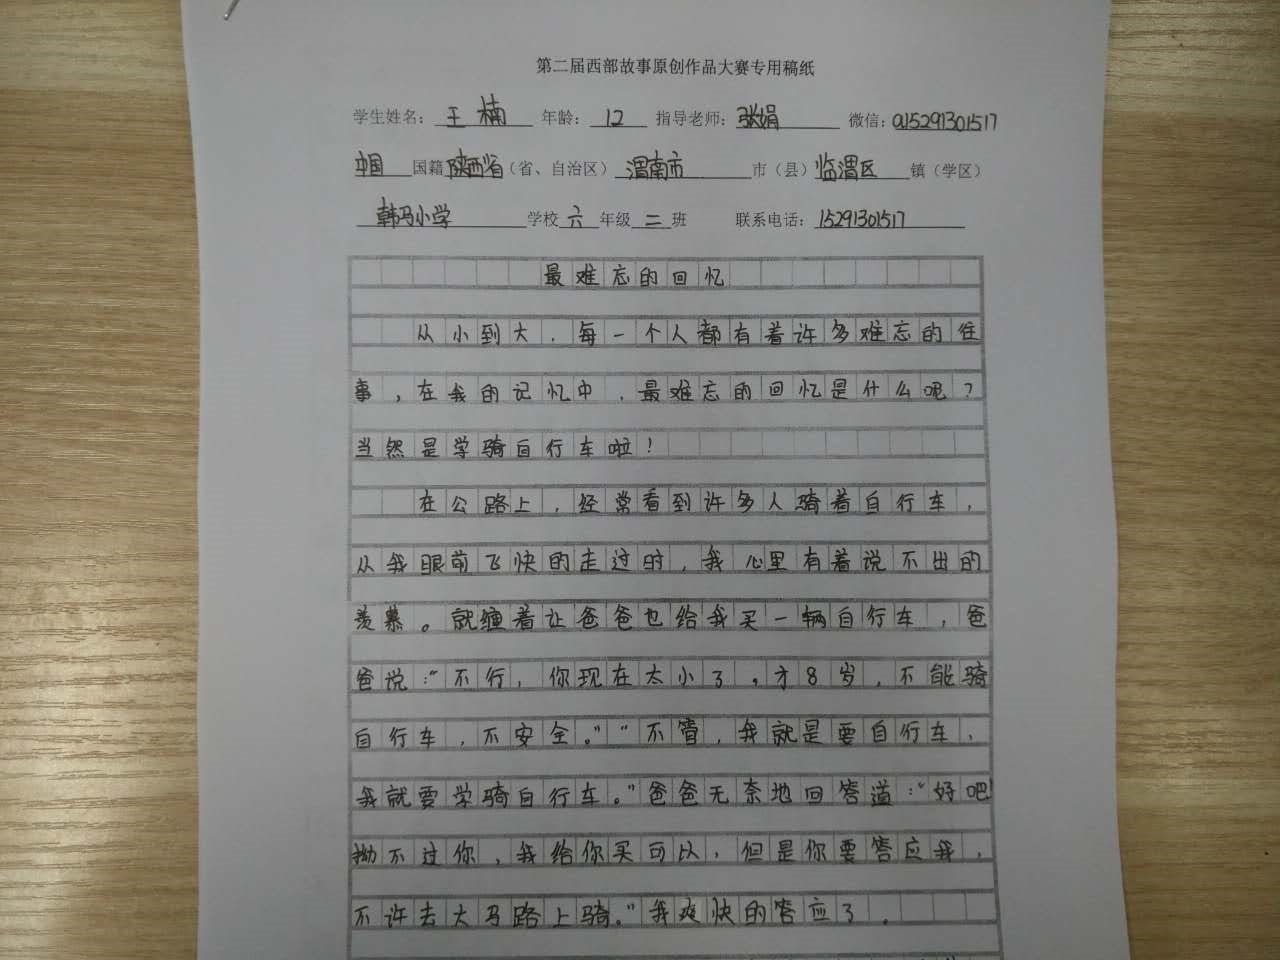 第二届西部故事原创作品大赛专用稿纸
学生姓名：王楠 年龄：12 指导老师：张娟 微信：a15291301517
中国 国籍 陕西省（省、自治区） 渭南市 市（县）临渭区 镇（学区）
韩马小学 学校 六 年级 二 班 联系电话：15291301517
最难忘的回忆
从小到大，每一个人都有着许多难忘的往
事，在我的记忆中，最难忘的回忆是什么呢？
当然是学骑自行车啦！
在公路上，经常看到许多人骑着自行车，
从我眼前飞快的走过时，我心里有着说不出的
羡慕。就缠着让爸爸也给我买一辆自行车，爸
爸说：“不行，你现在太小了，才8岁，不能骑
自行车，不安全。”“不管，我就是要自行车，
我就要学骑自行车。”爸爸无奈地回答道：“好吧！
拗不过你，我给你买可以，但是你要答应我，
不许去大马路上骑。”我爽快的答应了。